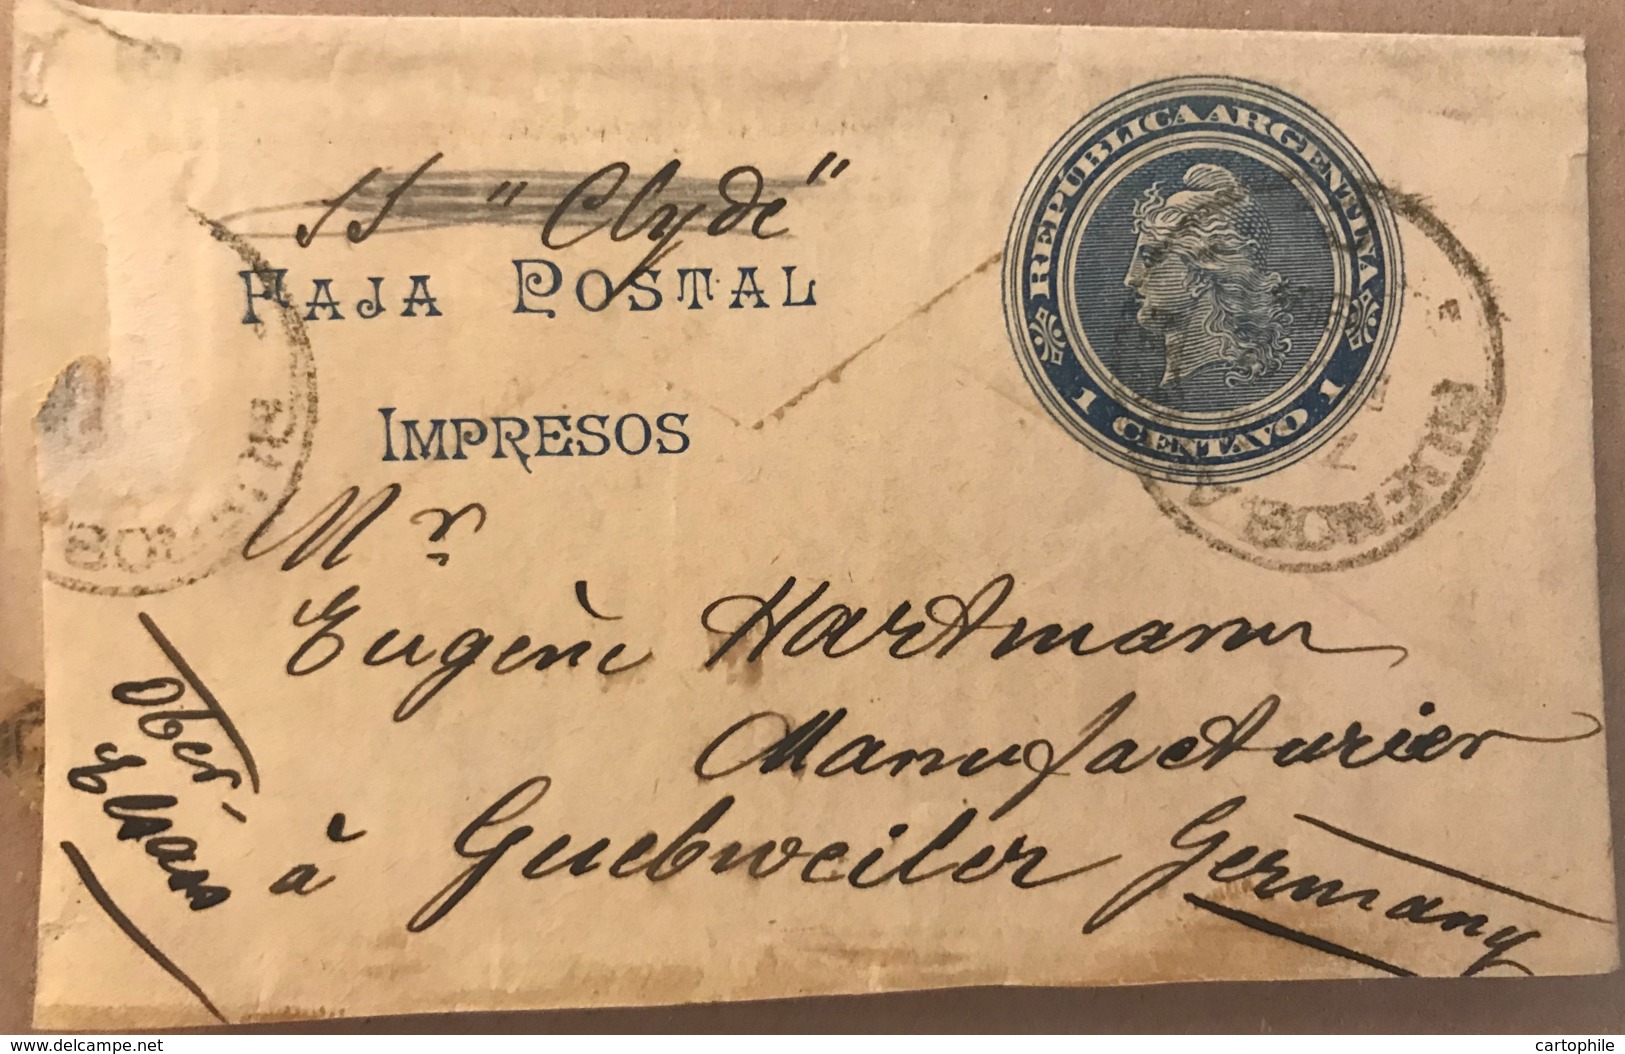 SS "Clyde"
FAJA POSTAL
IMPRESOS
REPÚBLICA ARGENTINA
1 CENTAVO 1
BUENOS A
BUENOS
Mr
Eugène Hartmann
Manufacturier
à Guebweiler Germany
Ober-
Elsass
www.delcampe.net
cartophile